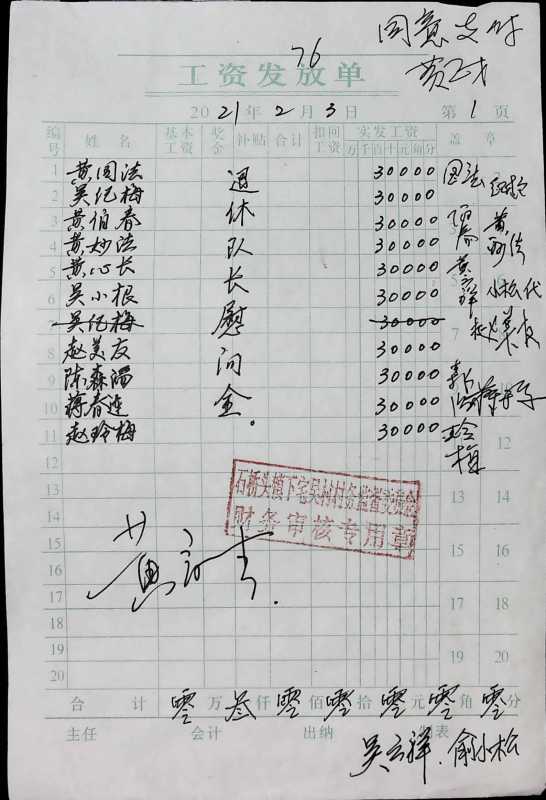 76
同意支付
工资发放单
2021年2月3日 第1页
编号 姓名 基本工资 奖金 补贴 合计 扣回工资 实发工资 盖章
万千百十元角分
1 黄国法 30000 国法
2 吴纪梅 30000
3 黄伯春 30000
4 黄妙法 30000
5 黄心长 30000
6 吴小根 30000 小松代
7 吴纪梅 30000
8 赵美友 30000
9 陈森 30000
10 蒋春连 30000
11 赵玲梅 30000 玲梅
退休队长慰问金。
12
13
14
15
16
17
18
19
20
7
12
13 14
15 16
17 18
19 20
石桥头镇下宅吴村村务监督委员会
财务审核专用章
合计 零万叁仟零佰零拾零元零角零分
主任 会计 出纳 制表
吴云祥.俞小松